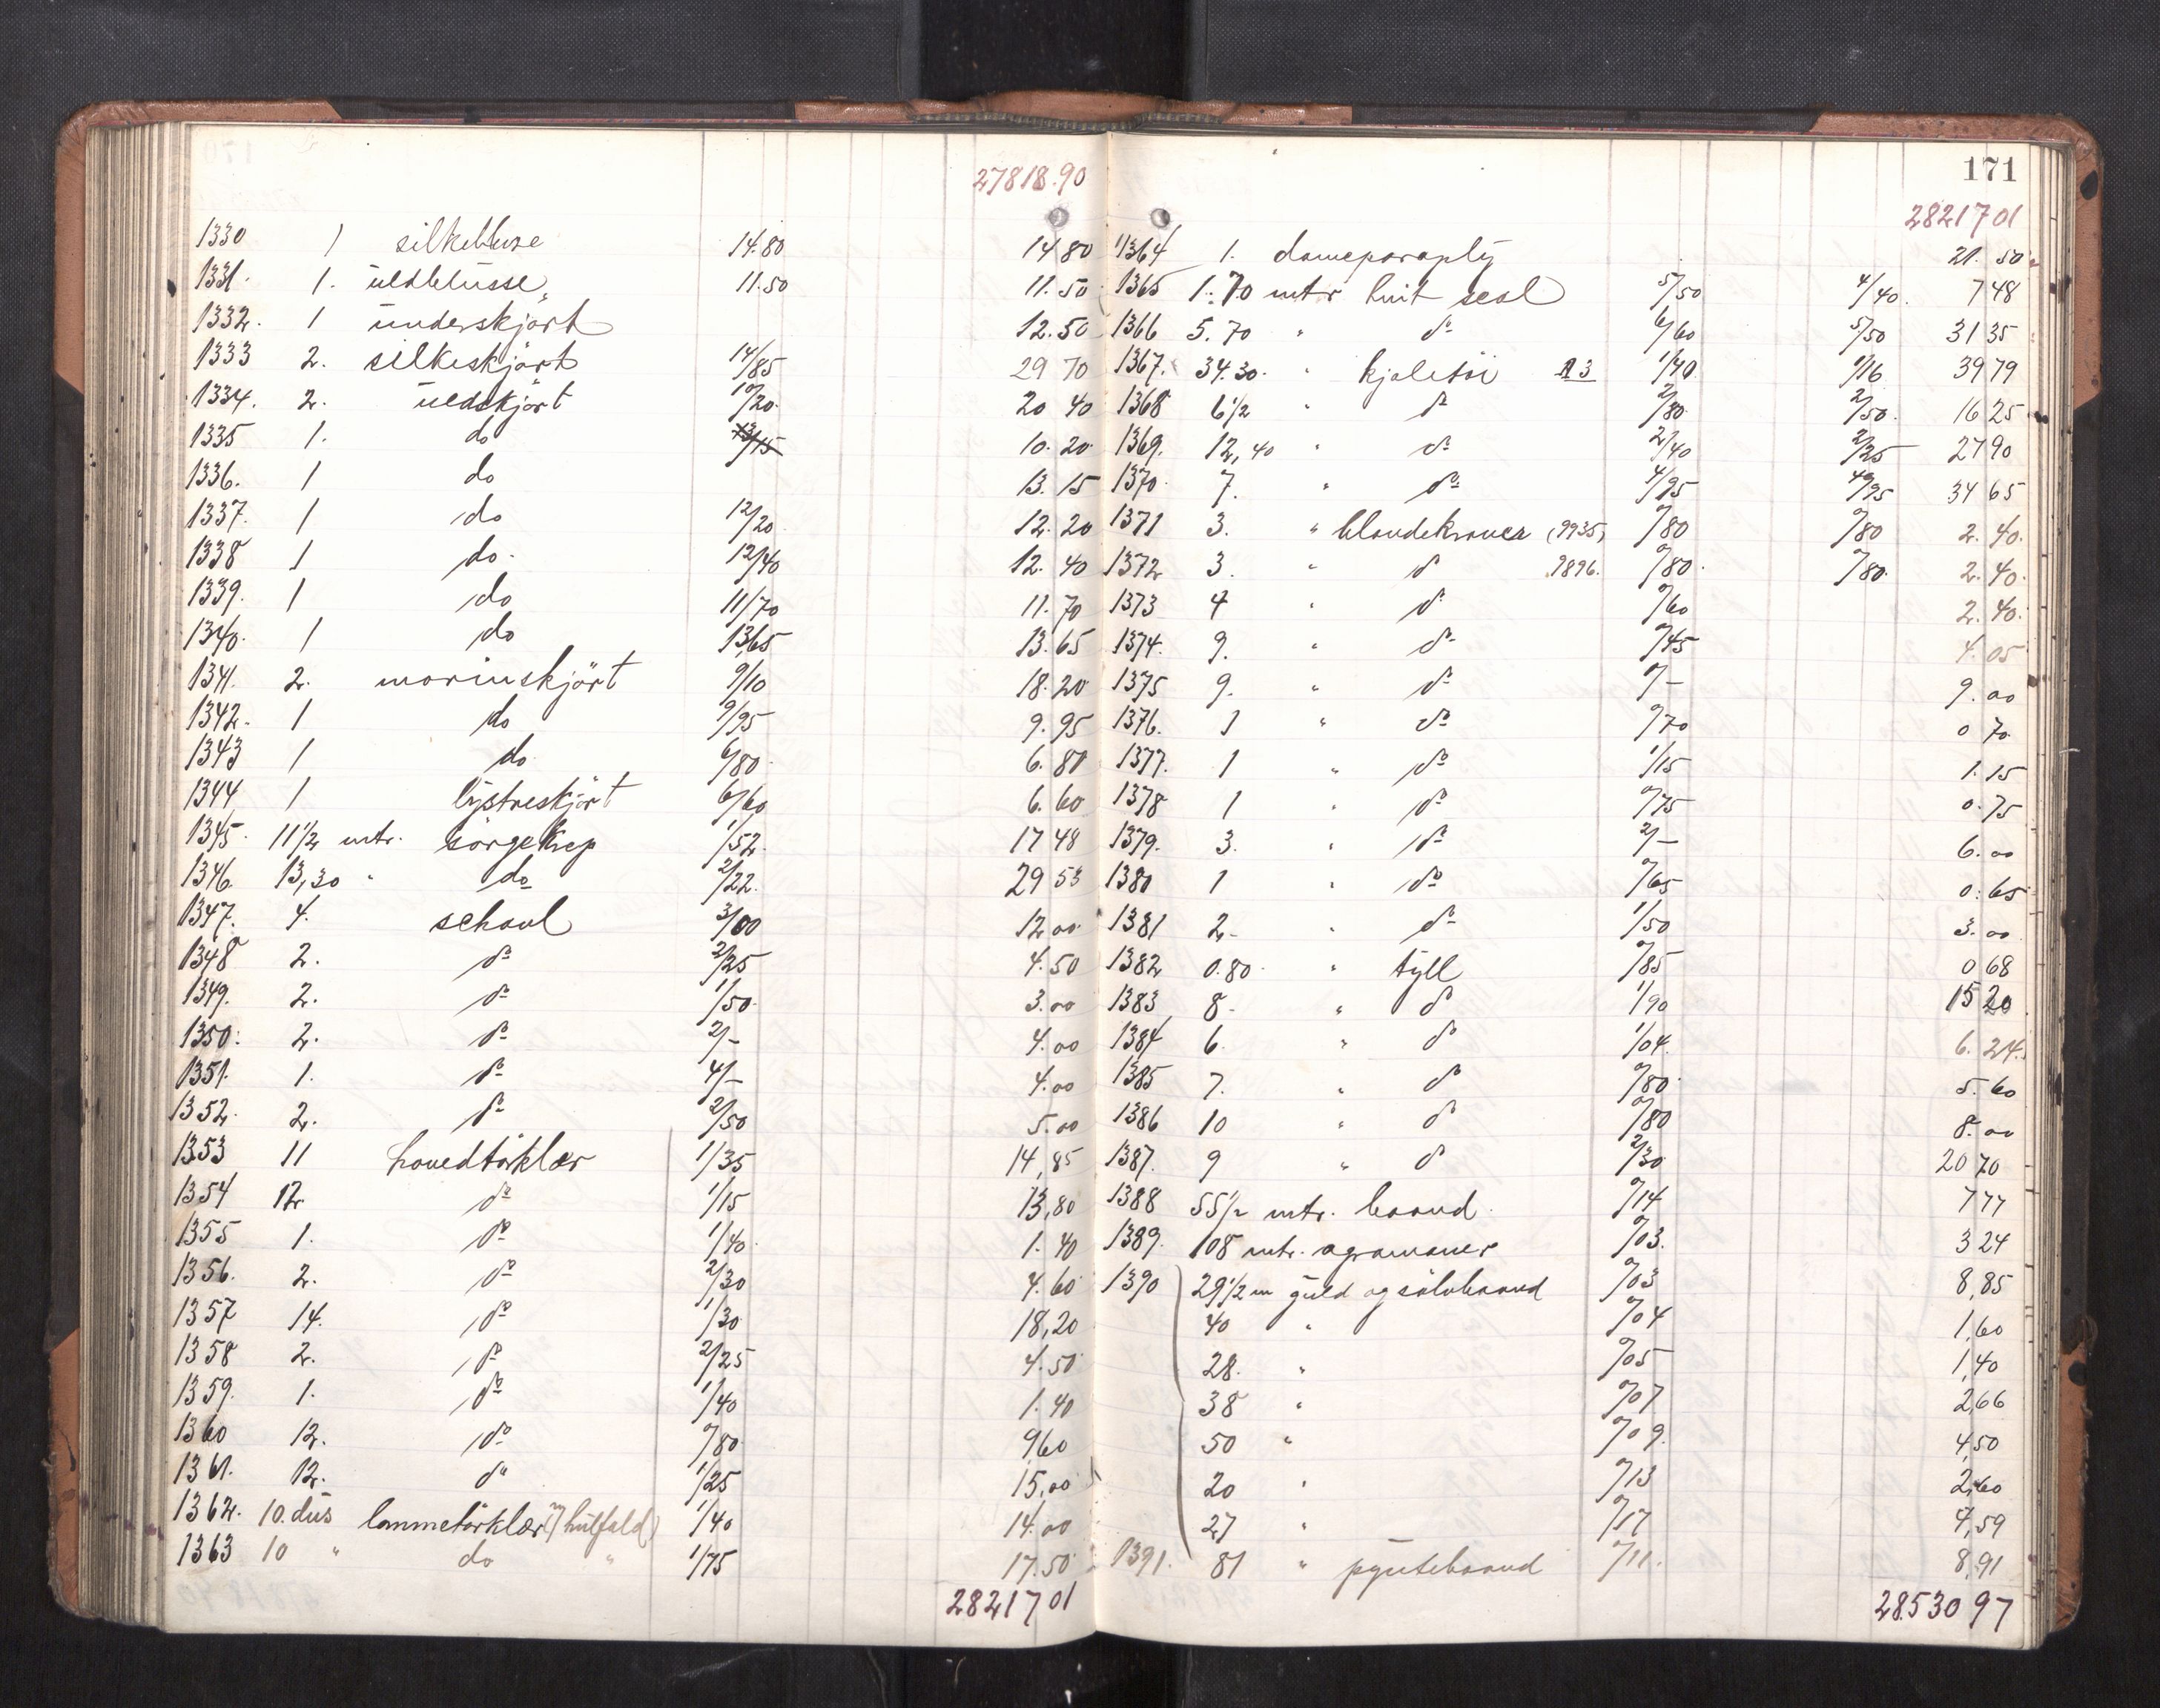 27818.90
1330 1 silkebluse 14.80 14 80
1331. 1. uldblusse 11.50 11.50
1332. 1 underskjørt 12.50
1333 2. silkeskjørt 14/85 29 70
1334. 2. uldskjørt 10/20. 20 40
1335 1. do 13/15 10. 20
1336. 1 do 13. 15
1337. 1 do 12/20 12. 20
1338 1 do. 12/40 12. 40
1339. 1 do 11/70 11. 70
1340. 1 do 13,65 13. 65
1341. 2. morinskjört 9/10 18. 20
1342. 1 do 9/95 9. 95
1343 1 do 6/80. 6. 80
1344 1 lystreskjört 6/60 6. 60
1345. 11 1/2 mtr. sörgekrep 1/52. 17 48
1346. 13,30 " do 2/22. 29 53
1347. 4. schavl 3/00 12 00
1348 2. do 2/25 4. 50
1349. 2. do 1/50. 3. 00
1350. 2. do 2/- 4. 00
1351. 1. do 4/- 4. 00
1352. 2. do 2/50 5. 00
1353 11 hovedtörklær 1/35 14,85
1354 12 do 1/15 13,80
1355 1. do 1/40. 1. 40
1356. 2. do 2/30 4. 60
1357 14. do 1/30 18,20
1358 2. do 2/25 4. 50
1359. 1. do 1/40 1. 40
1360 12. do 0/80. 9,60
1361. 12. do 1/25 15,00
1362. 10. dus lommetörklær (m/hulfald) 1/40 14. 00
1363 10 " do " 1/75 17. 50
28217 01
171
28217 01
1364 1. dameparaply 21. 50
1365 1.70 mtr hvit sesl 5/50 4/40. 7 48
1366 5. 70 " do 6/60 5/50 31 35
1367. 34. 30. " kjoletöi 13 1/40 1/16 39 79
1368 6 1/2 " do 2/80. 2/50. 16 25
1369. 12,40 " do 2/40 2/25 27 90
1370. 7. " do 4/95 4/95 34 65
1371 3. " blondekraver (9935) 0/80 0/80 2. 40.
1372 3. " do 9896. 0/80. 0/80. 2. 40.
1373 4 " do 0/60 2. 40.
1374. 9. " do 0/45 4. 05
1375 9. " do 1/- 9. 00
1376. 1 " do 0/70 0 70
1377. 1 " do 1/15 1. 15
1378 1 " do 0/75 0. 75
1379. 3. " do 2/- 6. 00
1380 1 " do 0/65 0. 65
1381 2. " do 1/50 3. 00
1382 0.80. " tyll 0/85 0 68
1383 8. " do 1/90 15 20
1384 6. " do 1/04 6. 24.
1385 7. " do 0/80. 5. 60
1386 10 " do 0/80 8. 00
1387. 9 " do 2/30 20 70
1388 55 1/2 mtr. baand. 0/14 7 77
1389. 108 mtr. agramaner 0/03. 3 24
1390 29 1/2 m guld og sölvbaand 0/03 8,85
40 " 0/04 1,60
28. " 0/05 1,40
38 " 0/07 2,66
50 " 0/09. 4,50
20 " 0/13 2,60
27 " 0/17 4,59
1391. 81 " pyntebaand 0/11. 8,91
28530 97